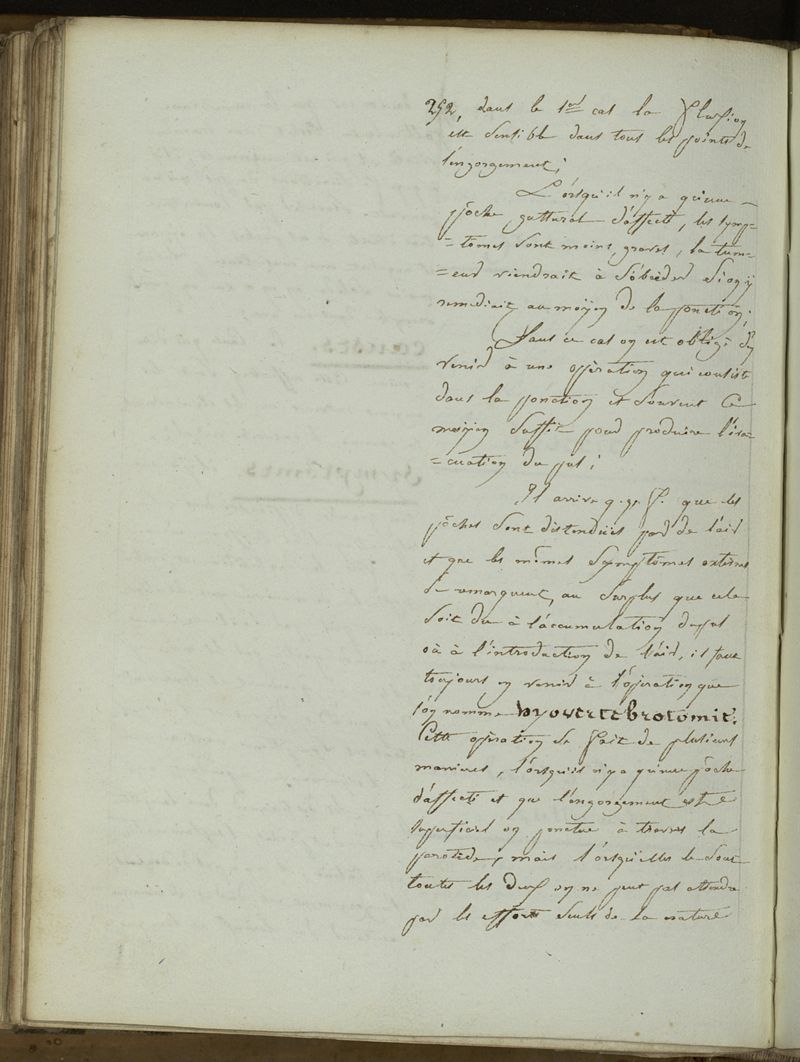 252, dans le 1er cas la fluxion
est sensible dans tous les points de
l'engorgement;
L'orsqu'il n'y a qu'une
pôche guttural d'affecté, les symp=
=tomes sont moins graves, la tum=
=eur viendrait à s'obceder si on y
remediait au moyen de la ponction;
Dans ce cas on est obligé d'en
venir à une opèration qui consiste
dans la ponction et souvent ce
moyen suffit pour produire l'éva=
=cuation du pus;
Il arrive q.q. f. que les
pôches sont distenduës par de l'air
et que les mêmes symptômes externes
se remarquent, au surplus que cela
soit du à l'accumulation du pus
où à l'introduction de l'air, il faut
toujours en venir à l'opération que
l'on nomme hyovertébrotomie.
Cette opèration se fait de plusieurs
manieres, l'orsqu'il n'y a qu'une pôche
d'affecté et que l'engorgement est
superficiel on ponctue à travers la
parotide, mais l'orsqu'elles le sont
toutes les deux on ne peut pas attendre
par les efforts seuls de la nature